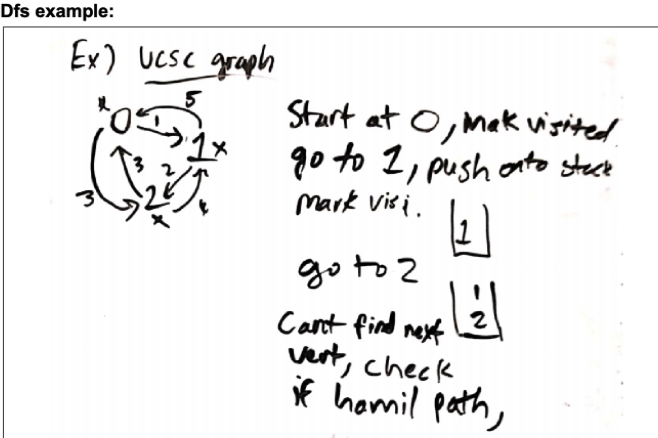 Dfs example:
Ex) UCSC graph
x 5
0 1
1 x
3 3 2
2 4
x
Start at 0, mak visited
go to 1, push onto stack
mark visi.
1
go to 2
1
2
Cant find next
vert, check
if hamil path,